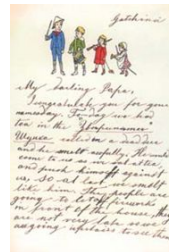 Gatchina
My darling Papa,
I congratulate you for your
namesday. To-day we had
tea in the
and he smelt awfully. He
come to us
and himself against
us, SO at last we smelt
like him. The people are
going to let off fireworks
in front of the house, they
are not very late so we
are going upstairs to see them